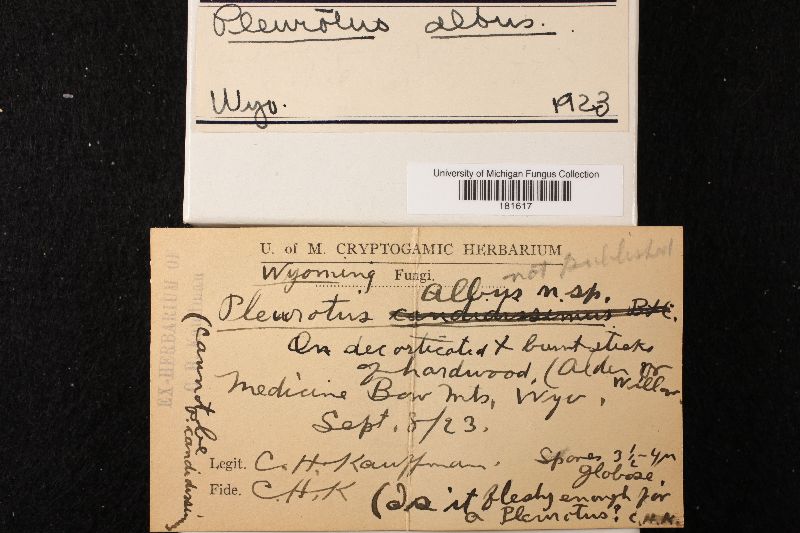 Pleurotus albus.
Wyo. 1923
University of Michigan Fungus Collection
181617
U. of M. CRYPTOGAMIC HERBARIUM
not published
Wyoming Fungi.
albus n.sp.
Pleurotus candidissimus B&C.
On decorticated & burnt sticks
of hardwood, (Alder or
Willow.
Medicine Bow Mts, Wyo.
Sept. 8/23.
Legit. C. H. Kauffman.
Spores 3½-4µ
globose.
Fide. C H. K
(Is it fleshy enough for
a Pleurotus? C.H.K.
(Cannot be
P. candidissim
EX-HERBARIUM OF
C. H. KAUFFMAN